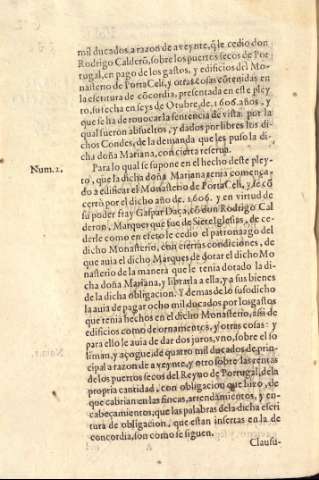 mil ducados, a razon de a veynte, q̃ le cedio don
Rodrigo Calderõ, sobre los puertos secos de Por
tugal, en pago de los gastos, y edificios del Mo-
nasterio de PortaCeli, y otras cosas cõtenidas en
la escritura de cõcordia, presentada en este pley
to, su fecha en seys de Otubre, de 1606. años, y
que se ha de reuocar la sentencia de vista por la
qual fueron absueltos, y dados por libres los di-
chos Condes, de la demanda que les puso la di-
cha doña Mariana, con cierta reserua.
Num. 2. Para lo qual se supone en el hecho deste pley-
to, que la dicha doña Mariana tenia comença-
do a edificar el Monasterio de PortaCeli, y se cõ
certò por el dicho año de 1606. y en virtud de
su poder fray Gaspar Daça, cõ don Rodrigo Cal
deron, Marques que fue de Sieteiglesias, de ce-
derle como en efeto le cedio el patronazgo del
dicho Monasterio, con ciertas condiciones, de
que auia el dicho Marques de dotar el dicho Mo
nasterio de la manera que le tenia dotado la di-
cha doña Mariana, y librarla a ella, y a sus bienes
de la dicha obligacion. Y demas de lo susodicho
la auia de pagar ocho mil ducados por los gastos
que tenia hechos en el dicho Monasterio, assi de
edificios como de ornamentos, y otras cosas: y
para ello le auia de dar dos juros, vno, sobre el so
liman, y açogue, de quatro mil ducados de prin-
cipal a razon de a veynte, y otro sobre las rentas
de los puertos secos del Reyno de Portugal, de la
propria cantidad, con obligacion que hizo, de
que cabrian en las fincas, arrendamientos, y en-
cabeçamientos; que las palabras de la dicha escri
tura de obligacion, que estan insertas en la de
concordia, son como se siguen.
Clausu-